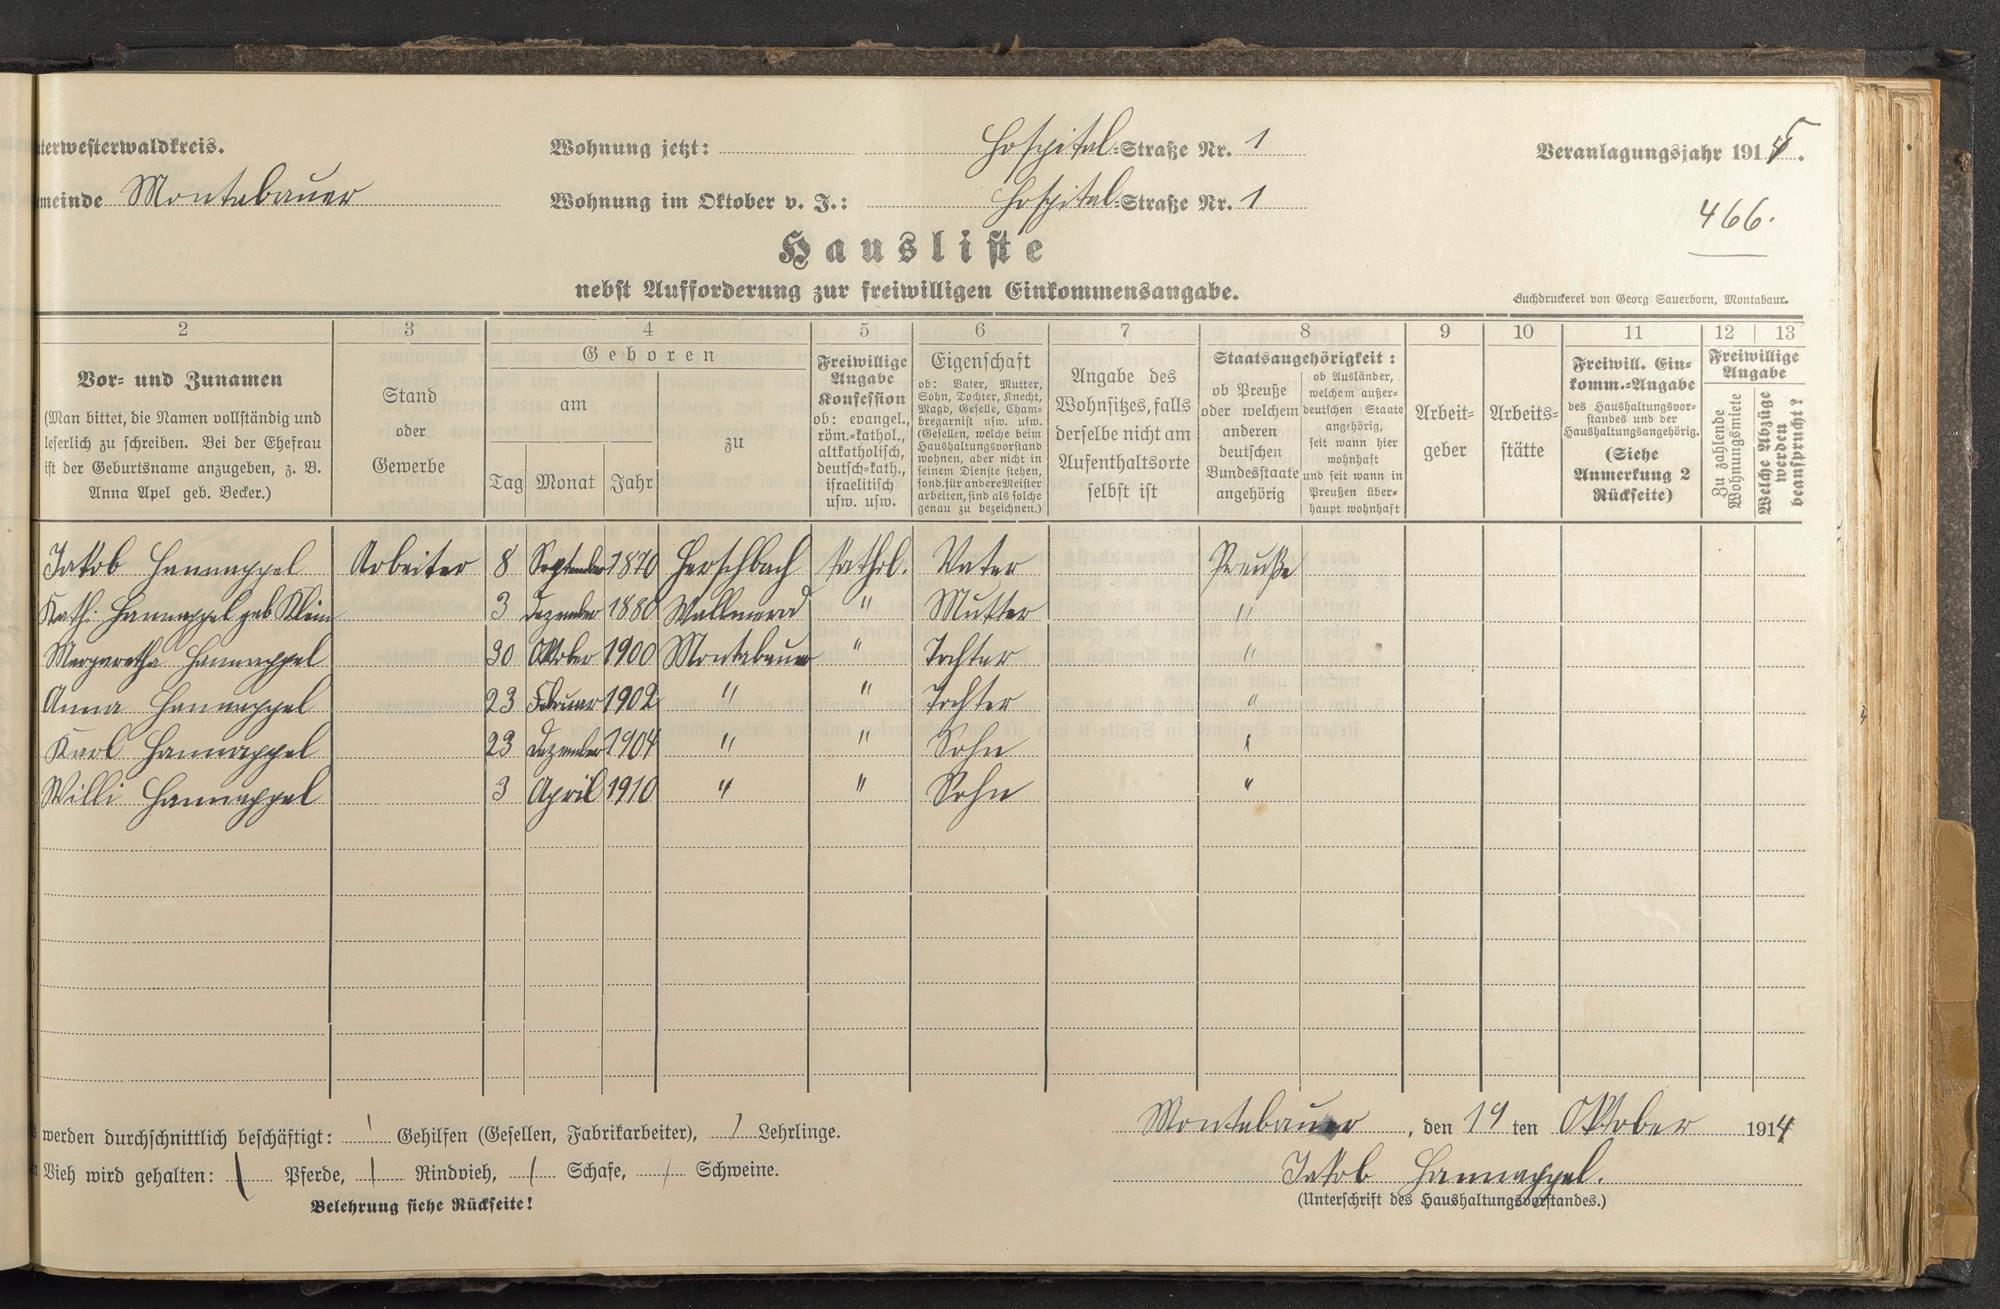 terwesterwaldkreis.
Wohnung jetzt: Hospital-Straße Nr. 1
Veranlagungsjahr 1915.
meinde Montabauer
Wohnung im Oktober v. J.: Hospital-Straße Nr. 1
466.
Hausliste
nebst Aufforderung zur freiwilligen Einkommensangabe.
Buchdruckerei von Georg Sauerborn, Montabaur.
2 3 4 5 6 7 8 9 10 11 12 13
Vor- und Zunamen
(Man bittet, die Namen vollständig und
leserlich zu schreiben. Bei der Ehefrau
ist der Geburtsname anzugeben, z. B.
Anna Apel geb. Becker.)
Stand
oder
Gewerbe
Geboren
am
zu
Tag Monat Jahr
Freiwillige
Angabe
Konfession
ob: evangel.,
röm.-kathol.,
altkatholisch,
deutsch-kath.,
israelitisch
usw. usw.
Eigenschaft
ob: Vater, Mutter,
Sohn, Tochter, Knecht,
Magd, Geselle, Cham-
bregarnist usw. usw.
(Gesellen, welche beim
Haushaltungsvorstand
wohnen, aber nicht in
seinem Dienste stehen,
sond. für andere Meister
arbeiten, sind als solche
genau zu bezeichnen.)
Angabe des
Wohnsitzes, falls
derselbe nicht am
Aufenthaltsorte
selbst ist
Staatsangehörigkeit:
ob Preuße
oder welchem
anderen
deutschen
Bundesstaate
angehörig
ob Ausländer,
welchem außer-
deutschen Staate
angehörig,
seit wann hier
wohnhaft
und seit wann in
Preußen über-
haupt wohnhaft
Arbeit-
geber
Arbeits-
stätte
Freiwill. Ein-
komm.-Angabe
des Haushaltungsvor-
standes und der
Haushaltungsangehörig.
(Siehe
Anmerkung 2
Rückseite)
Freiwillige
Angabe
Zu zahlende
Wohnungsmiete
Welche Abzüge
werden
beansprucht?
Jakob Hannappel Arbeiter 8 September 1870 Herschbach kathol. Vater Preuße
Kath. Hannappel geb Klein 3 Dezember 1880 Wallmerod " Mutter "
Margaretha Hannappel 30 Oktober 1900 Montabauer " Tochter "
Anna Hannappel 23 Februar 1902 " " Tochter "
Karl Hannappel 23 Dezember 1904 " " Sohn "
Willi Hannappel 3 April 1910 " " Sohn "
werden durchschnittlich beschäftigt: / Gehilfen (Gesellen, Fabrikarbeiter), / Lehrlinge.
Vieh wird gehalten: / Pferde, / Rindvieh, / Schafe, / Schweine.
Belehrung siehe Rückseite!
Montabauer, den 19ten Oktober 1914
Jakob Hannappel.
(Unterschrift des Haushaltungsvorstandes.)